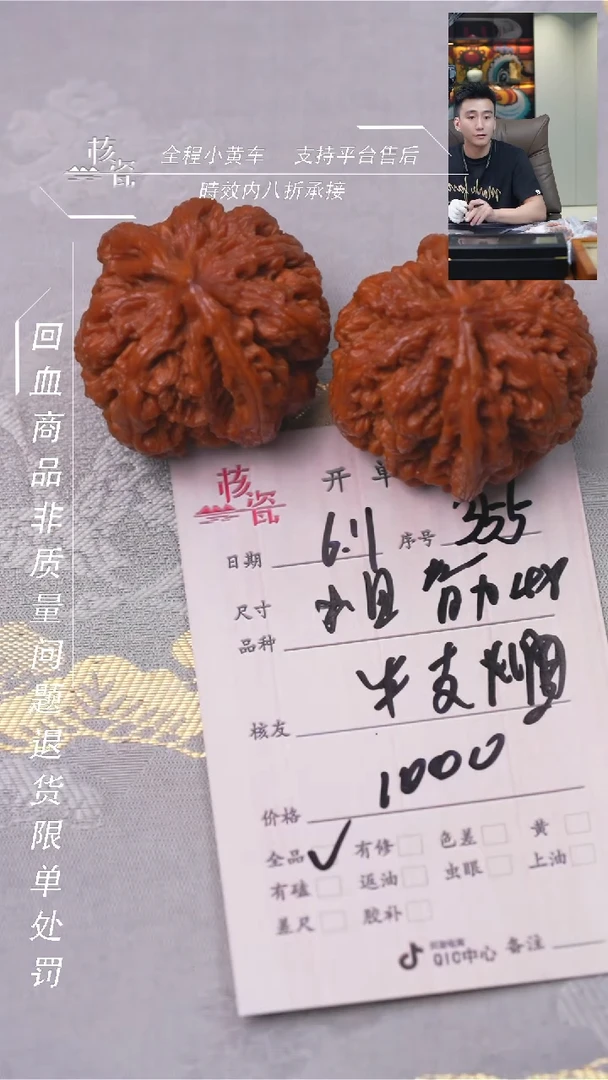 核瓷
全程小黄车 支持平台售后
時效内八折承接
回血商品非质量问题退货限单处罚
核瓷
开单
日期 6.11 序号 355
尺寸
品种
核友
1000
价格
全品 ✓ 有修 色差 黄
有磕 返油 虫眼 上油
差尺 胶补
QIC中心 备注